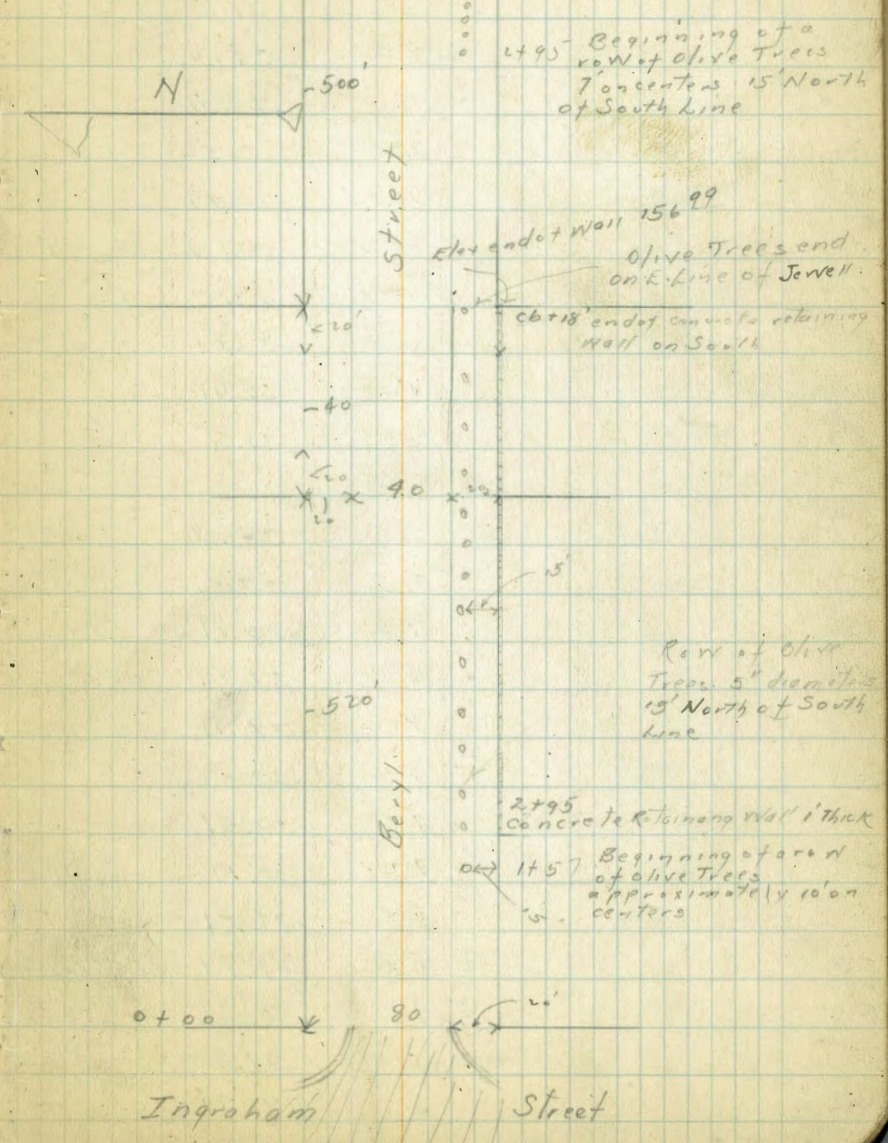 2+95 Beginning of a
row of Olive Trees
7' on centers 15' North
of South Line
N
-500'
Street
Elev end of Wall 156 99
Olive Trees end
on E. Line of Jewell.
cb+18' end of concrete retaining
Wall on South
<20'
-40
<20
20
40
20
15'
Row of Olive
Trees 5" diameters
15' North of South
Line
-520'
Beryl
2+95
Concrete Retaining Wall 1' Thick
1+57 Beginning of a row
of Olive Trees
approximately 10' on
centers
15
0+00
80
20'
Ingraham Street